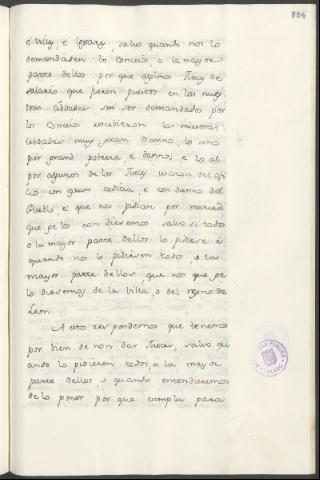 884
é Villas, é logares, salvo quando nos lo
demandasen los Conceios, o la mayor
parte dellos por que algunos Jueces de
salario que fueron puestos en las
Cibdades sin ser demandados por
los Conceios rescibieron las nuestras
Cibdades muy gran danno, lo uno
por grand pobreza é danno; é lo al
por algunos de los Jueces usaron del ofi
cio con gran codicia, é con danno del
Pueblo, é que nos pedian por merced
que ge los non diesemos salvo si todos
o la mayor parte dellos lo pidiere é
quando nos lo pidieren todos, o la
mayor parte dellos, que nos que ge
lo diesemos de la Villa, o del regno de
Leon.
A esto respondemos que tenemos
por bien de non dar Jueces, salvo qu
ando lo pidieren todos, o la mayor
parte dellos o quando entendieremos
de lo poner, por que cumpla para